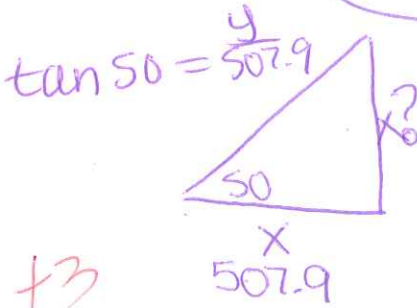 tan 50 = y/507.9
x?
50
x
507.9
+3